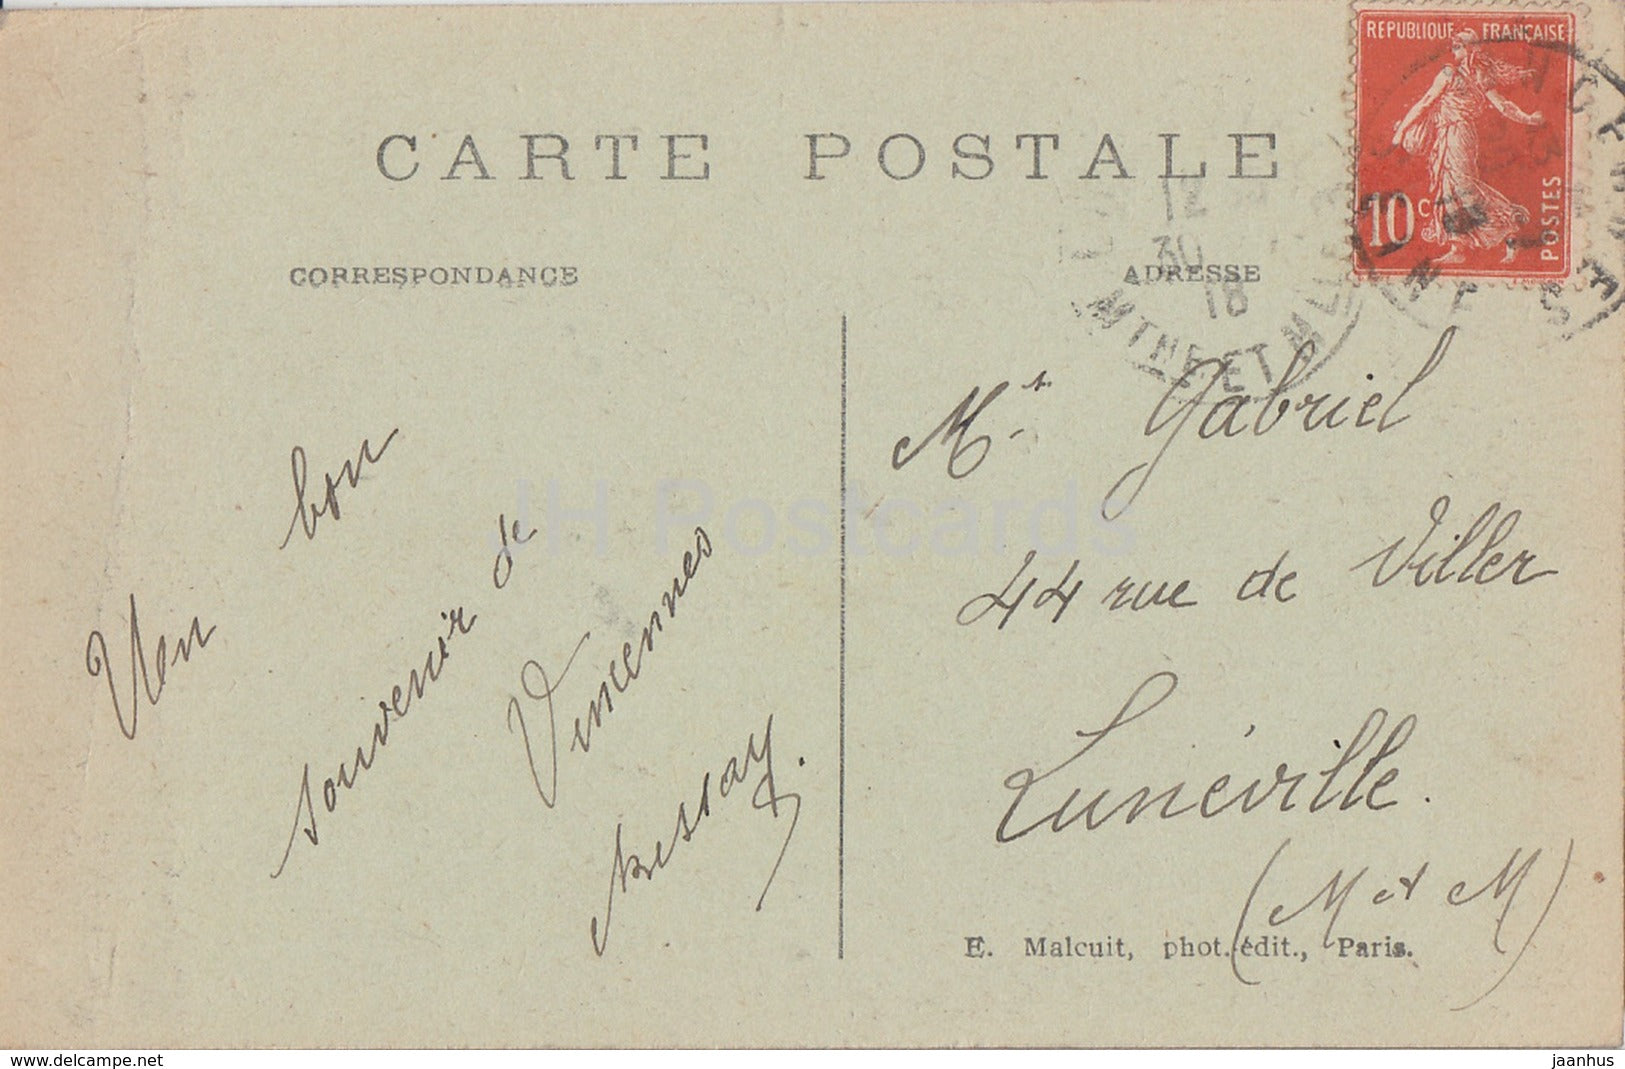 REPUBLIQUE FRANÇAISE
10 c
POSTES
CARTE POSTALE
CORRESPONDANCE
ADRESSE
12
30
18
MTHE ET MLLE
Un bon
souvenir de
Vincennes
Mr. Gabriel
44 rue de Viller
Lunéville.
(M et M)
E. Malcuit, phot. édit., Paris.
JH Postcards
www.delcampe.net
jaanhus